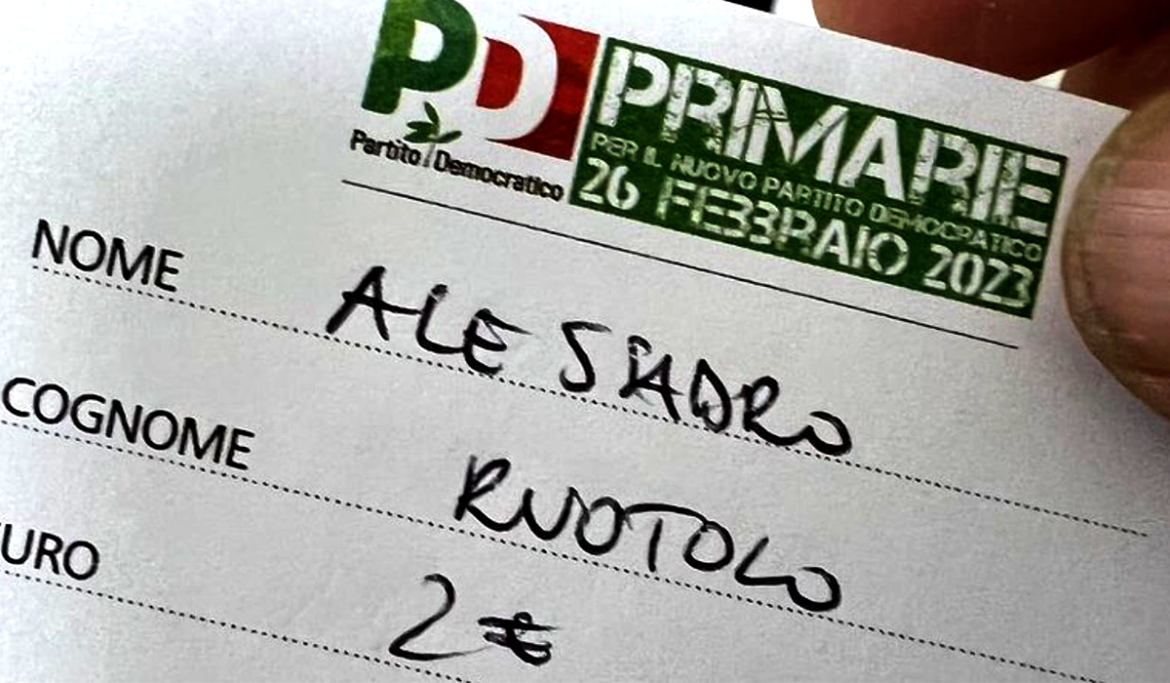 PD
Partito Democratico
PRIMARIE
PER IL NUOVO PARTITO DEMOCRATICO
26 FEBBRAIO 2023
NOME ALESSADRO
COGNOME RUOTOLO
URO 2€